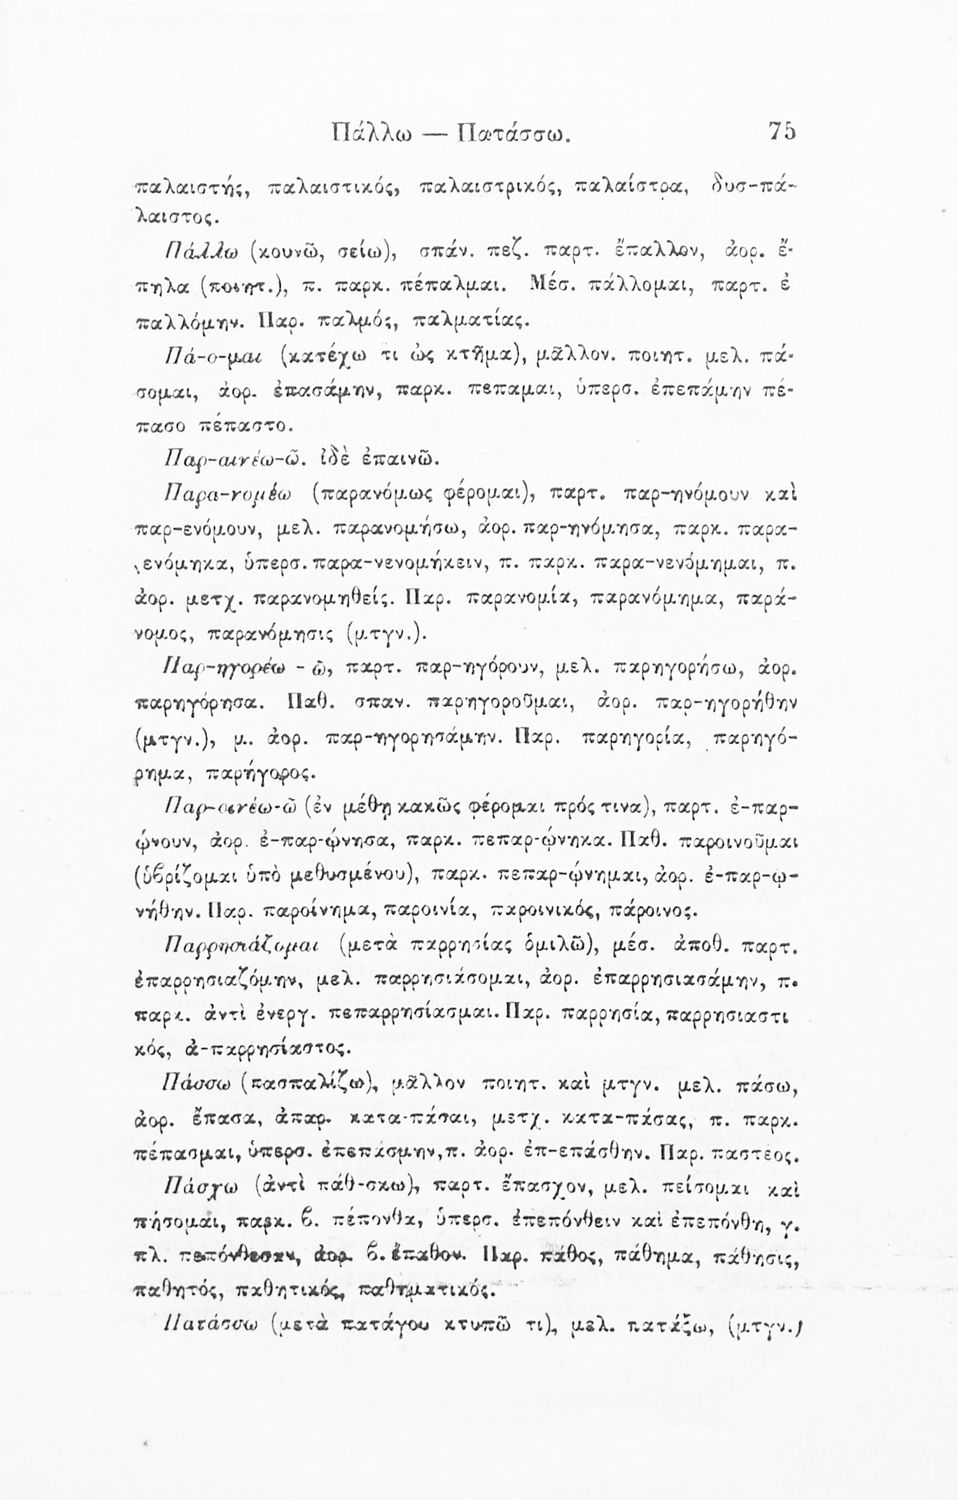 Πάλλω — Πατάσσω. 75
παλαιστής, παλαιστικός, παλαιστρικός, παλαίστρα, δυσ-πά-
λαιστος.
Πάλλω (κουνῶ, σείω), σπάν. πεζ. παρτ. ἔπαλλον, ἀορ. ἔ-
πηλα (ποιητ.), π. παρκ. πέπαλμαι. Μέσ. πάλλομαι, παρτ. ἐ
παλλόμην. Παρ. παλμός, παλματίας.
Πά-ο-μαι (κατέχω τι ὡς κτῆμα), μᾶλλον. ποιητ. μελ. πά-
σομαι, ἀορ. ἐπασάμην, παρκ. πέπαμαι, ὑπερσ. ἐπεπάμην πέ-
πασο πέπαστο.
Παρ-αινέω-ῶ. ἰδὲ ἐπαινῶ.
Παρα-νομέω (παρανόμως φέρομαι), παρτ. παρ-ηνόμουν καὶ
παρ-ενόμουν, μελ. παρανομήσω, ἀορ. παρ-ηνόμησα, παρκ. παρα-
νενόμηκα, ὑπερσ. παρα-νενομήκειν, π. παρκ. παρα-νενόμημαι, π.
ἀορ. μετχ. παρανομηθείς. Παρ. παρανομία, παρανόμημα, παρά-
νομος, παρανόμησις (μτγν.).
Παρ-ηγορέω - ῶ, παρτ. παρ-ηγόρουν, μελ. παρηγορήσω, ἀορ.
παρηγόρησα. Παθ. σπαν. παρηγοροῦμαι, ἀορ. παρ-ηγορήθην
(μτγν.), μ. ἀορ. παρ-ηγορησάμην. Παρ. παρηγορία, παρηγό-
ρημα, παρήγορος.
Παρ-οινέω-ῶ (ἐν μέθῃ κακῶς φέρομαι πρός τινα), παρτ. ἐ-παρ-
ῴνουν, ἀορ. ἐ-παρ-ῴνησα, παρκ. πεπαρ-ῴνηκα. Παθ. παροινοῦμαι
(ὑβρίζομαι ὑπὸ μεθυσμένου), παρκ. πεπαρ-ῴνημαι, ἀορ. ἐ-παρ-ῳ-
νήθην. Παρ. παροίνημα, παροινία, παροινικός, πάροινος.
Παρρησιάζομαι (μετὰ παρρησίας ὁμιλῶ), μέσ. ἀποθ. παρτ.
ἐπαρρησιαζόμην, μελ. παρρησιάσομαι, ἀορ. ἐπαρρησιασάμην, π.
παρκ. ἀντὶ ἐνεργ. πεπαρρησίασμαι. Παρ. παρρησία, παρρησιαστι
κός, ἀ-παρρησίαστος.
Πάσσω (πασπαλίζω), μᾶλλον ποιητ. καὶ μτγν. μελ. πάσω,
ἀορ. ἔπασα, ἀπαρ. κατα-πάσαι, μετχ. κατα-πάσας, π. παρκ.
πέπασμαι, ὑπερσ. ἐπεπάσμην, π. ἀορ. ἐπ-επάσθην. Παρ. παστέος.
Πάσχω (ἀντὶ πάθ-σκω), παρτ. ἔπασχον, μελ. πείσομαι καὶ
πήσομαι, παρκ. β. πέπονθα, ὑπερσ. ἐπεπόνθειν καὶ ἐπεπόνθη, γ.
πλ. πεπόνθεσαν, ἀορ. β. ἔπαθον. Παρ. πάθος, πάθημα, πάθησις,
παθητός, παθητικός, παθηματικός.
Πατάσσω (μετὰ πατάγου κτυπῶ τι), μελ. πατάξω, (μτγν.)